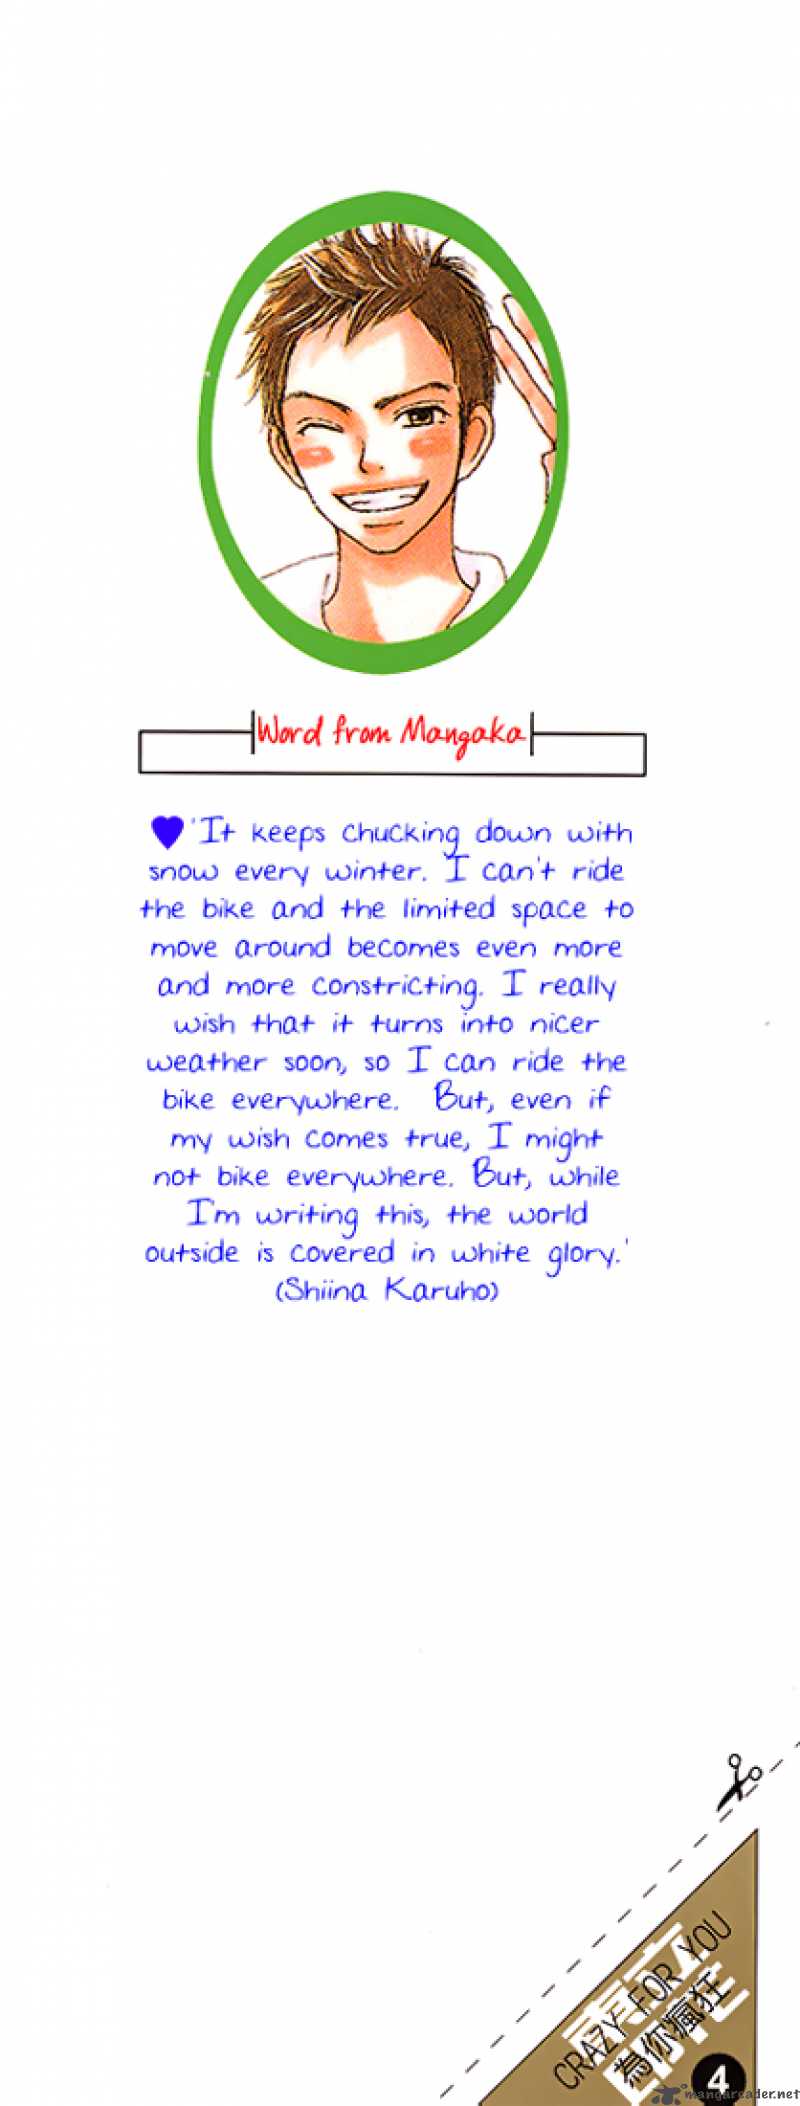 Word from Mangaka
♥ 'It keeps chucking down with
snow every winter. I can't ride
the bike and the limited space to
move around becomes even more
and more constricting. I really
wish that it turns into nicer
weather soon, so I can ride the
bike everywhere. But, even if
my wish comes true, I might
not bike everywhere. But, while
I'm writing this, the world
outside is covered in white glory.'
(Shiina Karuho)
CRAZY FOR YOU
為你瘋狂
東立
印花
4
mangareader.net